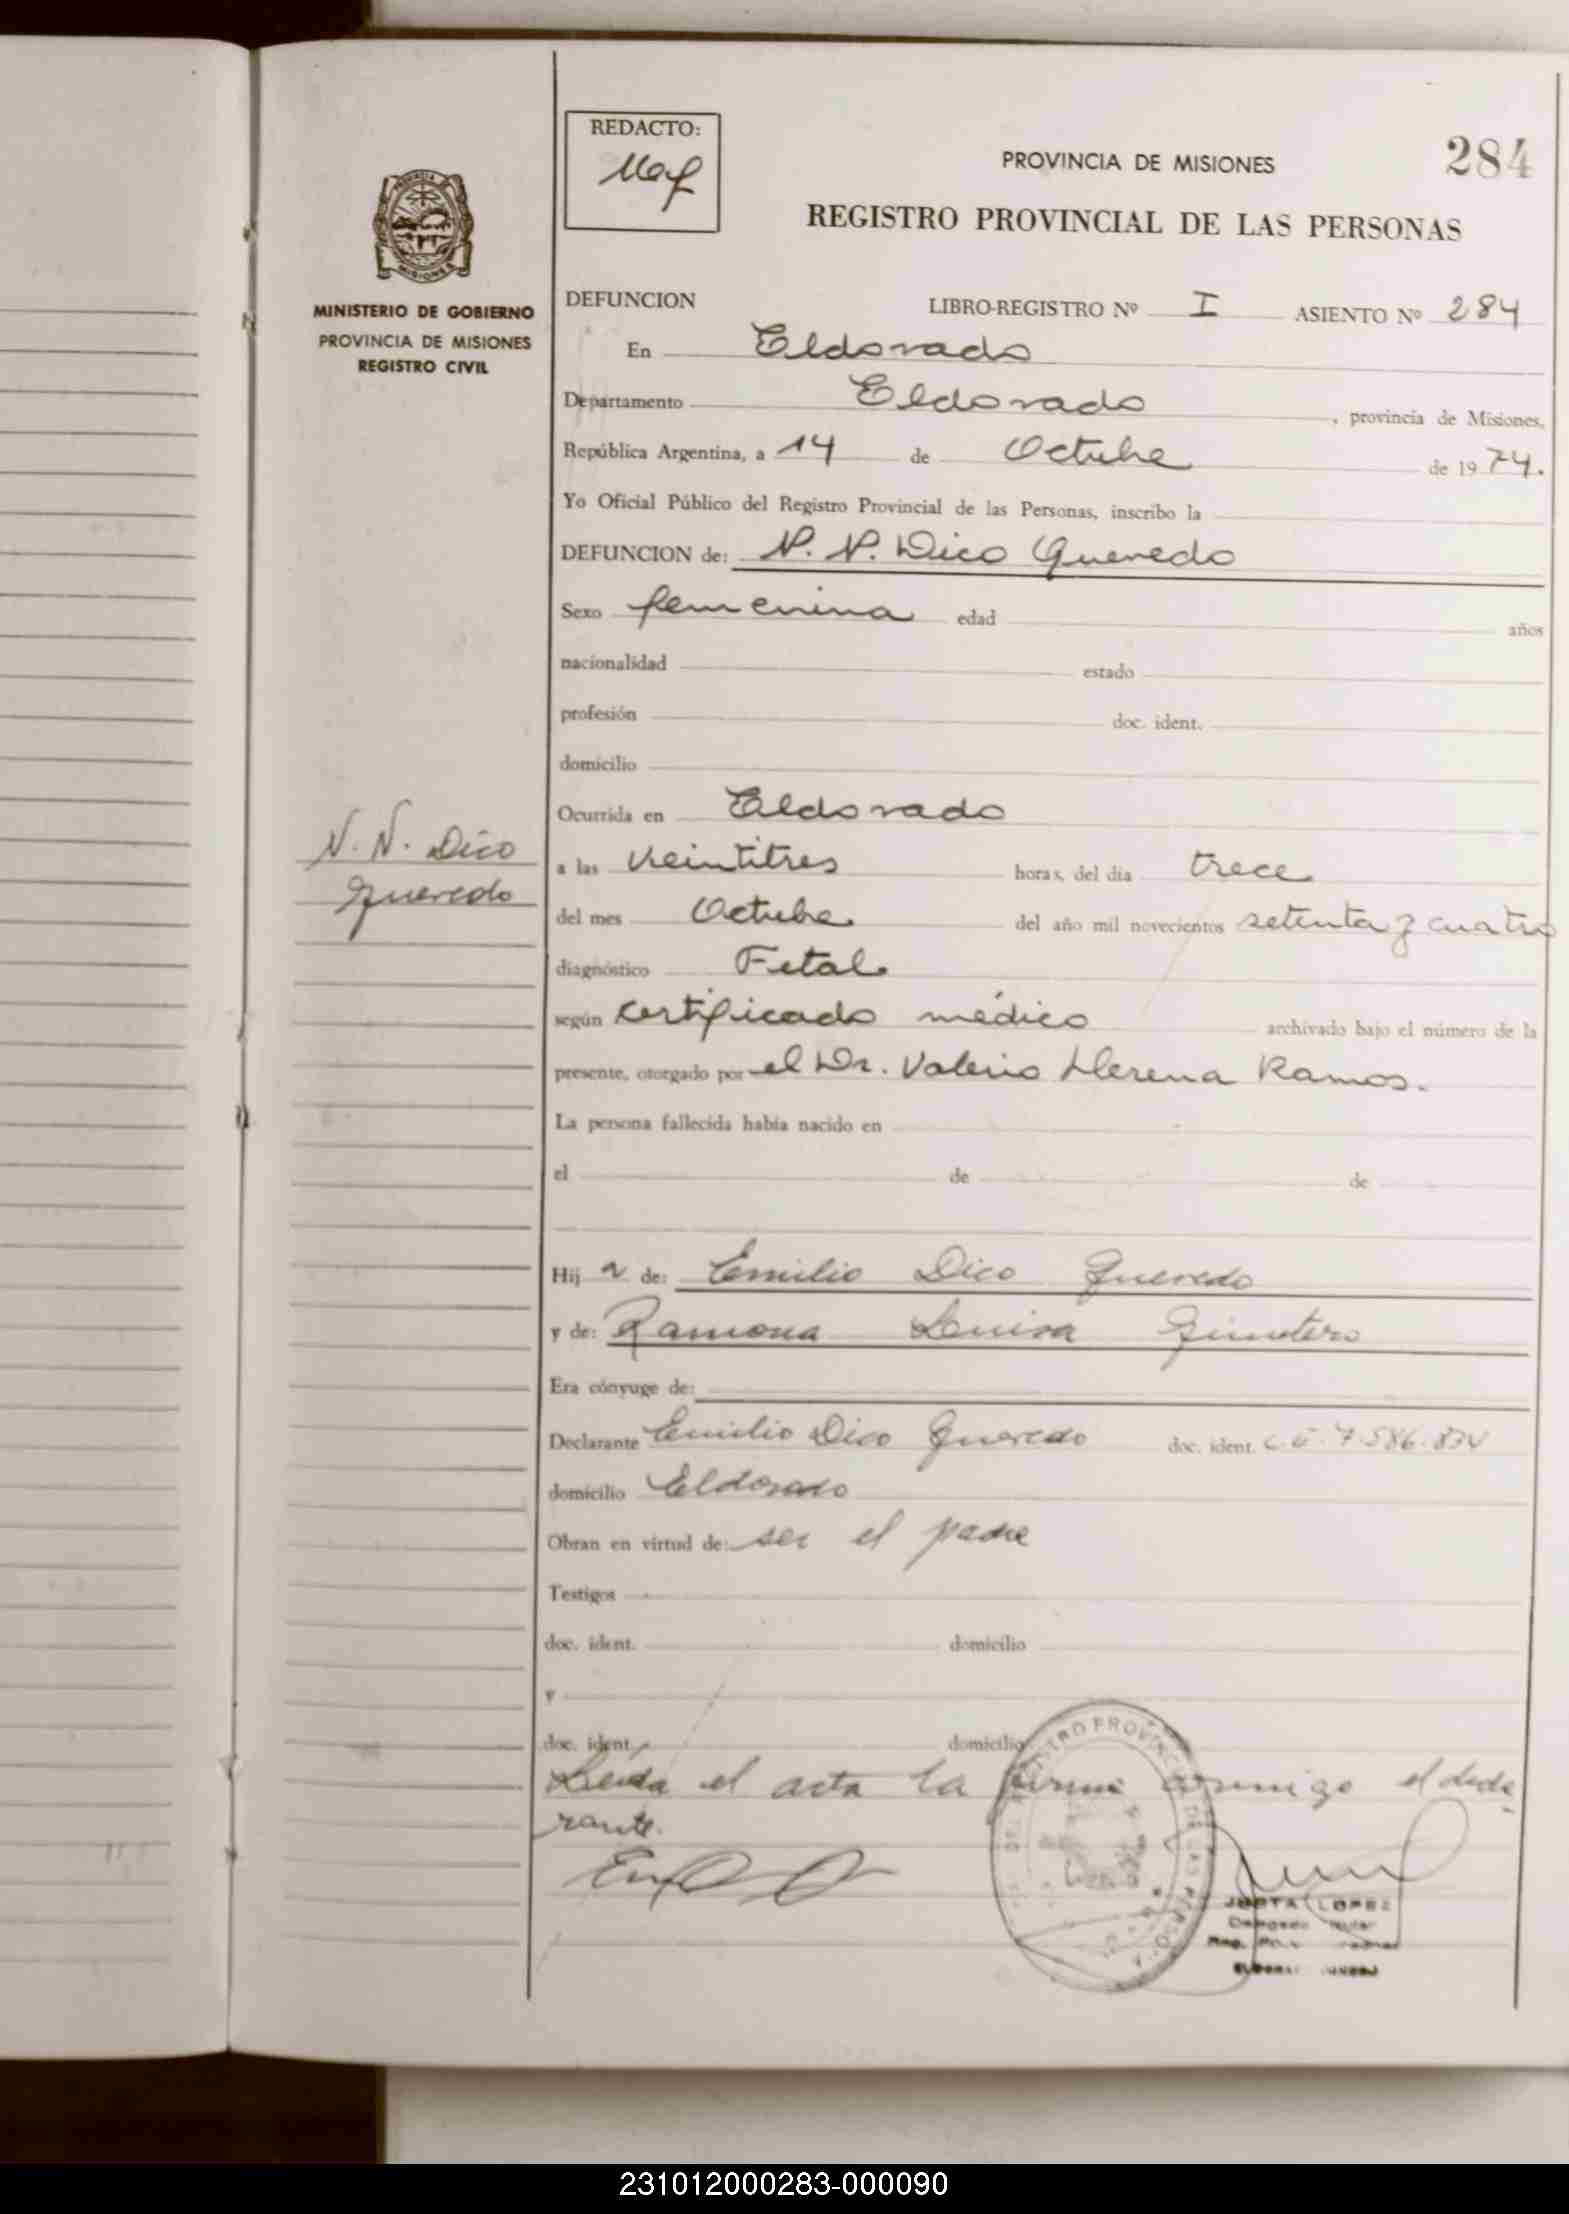 REDACTO:
PROVINCIA DE MISIONES
284
REGISTRO PROVINCIAL DE LAS PERSONAS
PROVINCIA DE
MISIONES
MINISTERIO DE GOBIERNO
PROVINCIA DE MISIONES
REGISTRO CIVIL
DEFUNCION LIBRO-REGISTRO Nº I ASIENTO Nº 284
En Eldorado
Departamento Eldorado, provincia de Misiones,
República Argentina, a 14 de Octubre de 1974.
Yo Oficial Público del Registro Provincial de las Personas, inscribo la
DEFUNCION de: N. N. Dico Quevedo
Sexo femenina edad años
nacionalidad estado
profesión doc. ident.
domicilio
Ocurrida en Eldorado
N. N. Dico
Quevedo
a las veintitres horas, del día trece
del mes Octubre del año mil novecientos setenta y cuatro
diagnóstico Fetal
según certificado médico archivado bajo el número de la
presente, otorgado por el Dr. Valerio Llerena Ramos.
La persona fallecida había nacido en
el de de
Hij a de: Emilio Dico Quevedo
y de: Ramona Luisa Quintero
Era cónyuge de:
Declarante Emilio Dico Quevedo doc. ident. 7.586.834
domicilio Eldorado
Obran en virtud de: ser el padre
Testigos
doc. ident. domicilio
y
doc. ident. domicilio
Leída el acta la firma conmigo el decla
rante.
REGISTRO PROVINCIAL DE LAS PERSONAS
LOPEZ
231012000283-000090